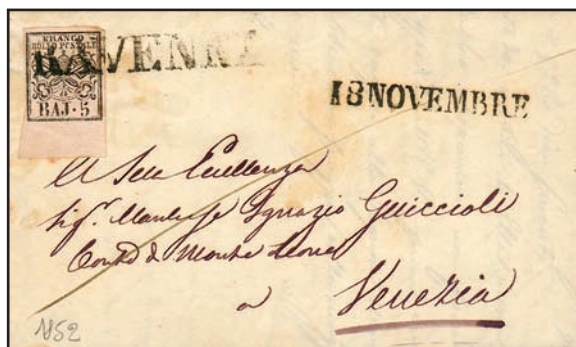 RAVENNA
FRANCO
BOLLO POSTALE
BAJ. 5
18 NOVEMBRE
A Sua Eccellenza
Sig.r Marchese Ignazio Guiccioli
Conte di Monte Leone
a Venezia
1852